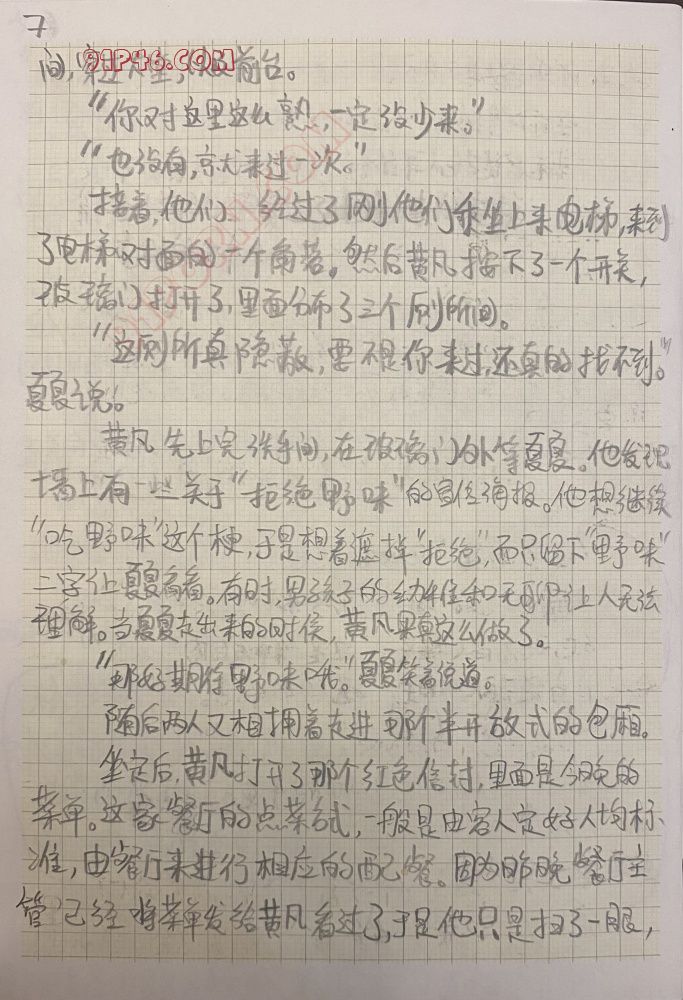 7
91P46.COM
间,穿过大堂,前台。
“你对这里这么熟,一定没少来。”
“也没有,就来过一次。”
接着,他们 经过了刚他们乘坐上来电梯,来到
了电梯对面的一个角落。然后黄凡按下了一个开关,
玻璃门打开了,里面分布了三个厕所间。
“这厕所真隐蔽,要不是你来过,还真的找不到。”
夏夏说。
黄凡先上完洗手间,在玻璃门外等夏夏。他发现
墙上有一些关于“拒绝野味”的宣传海报。他想继续
“吃野味”这个梗,于是想着遮掉“拒绝”,而只留下“野味”
二字让夏夏看看。有时,男孩子的幼稚和无聊让人无法
理解。当夏夏走出来的时候,黄凡果真这么做了。
“那好期待野味哦。”夏夏笑着说道。
随后两人又相拥着走进那个半开放式的包厢。
坐定后,黄凡打开了那个红色信封,里面是今晚的
菜单。这家餐厅的点菜式,一般是由客人定好人均标
准,由餐厅来进行相应的配餐。因为昨晚餐厅主
管已经将菜单发给黄凡看过了,于是他只是扫了一眼,